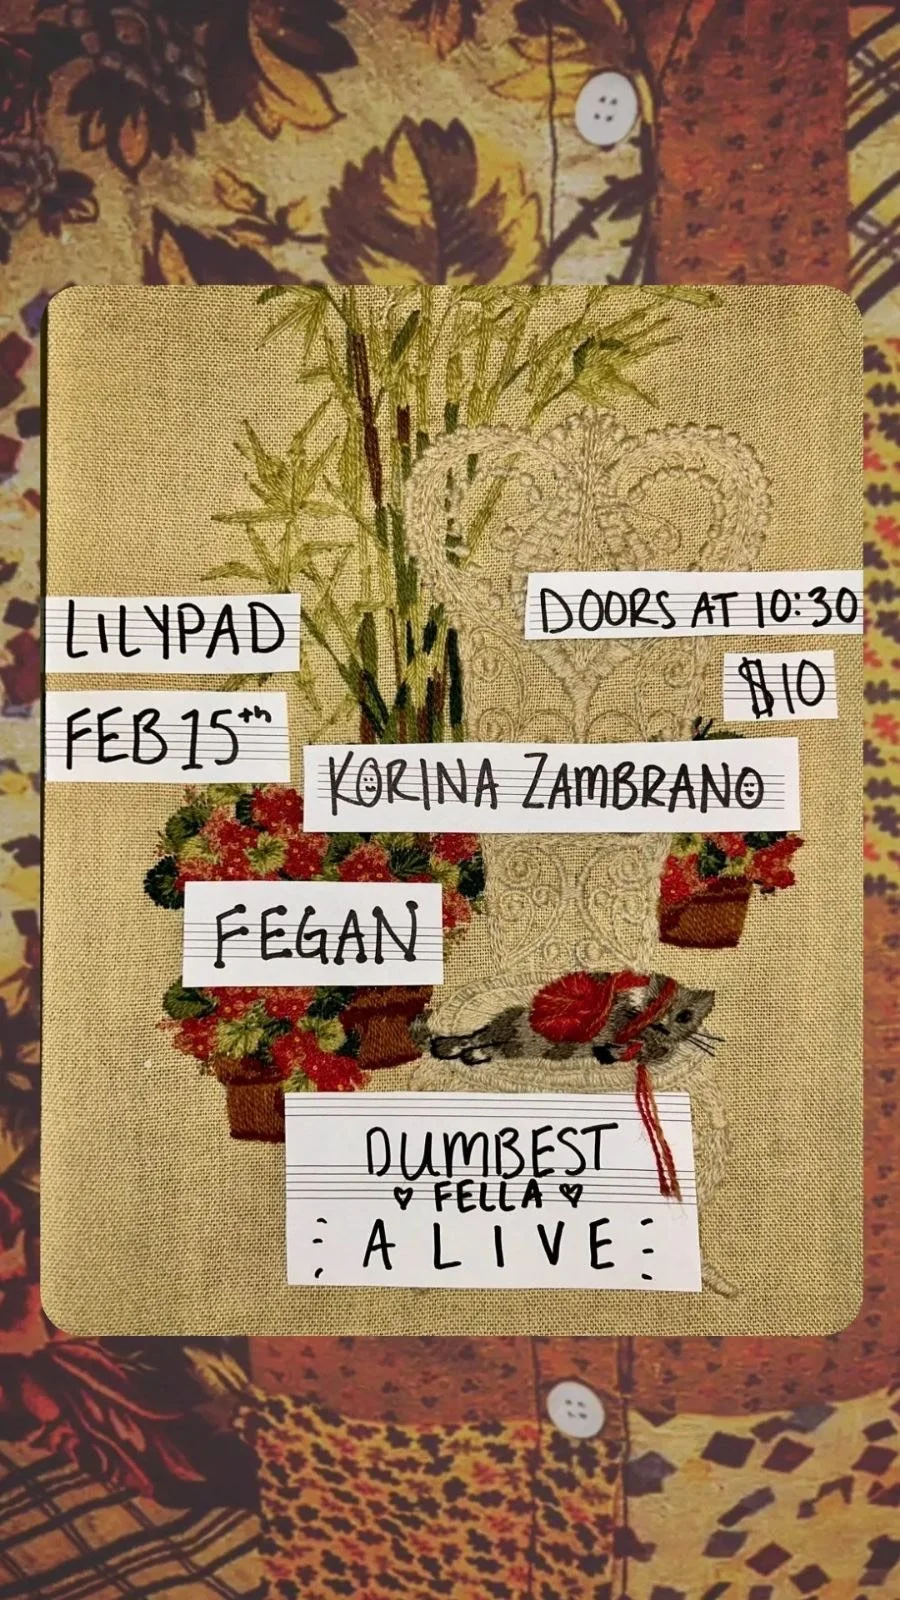 LILYPAD
FEB 15th
DOORS AT 10:30
$10
KORINA ZAMBRANO
FEGAN
DUMBEST
♡ FELLA ♡
ALIVE